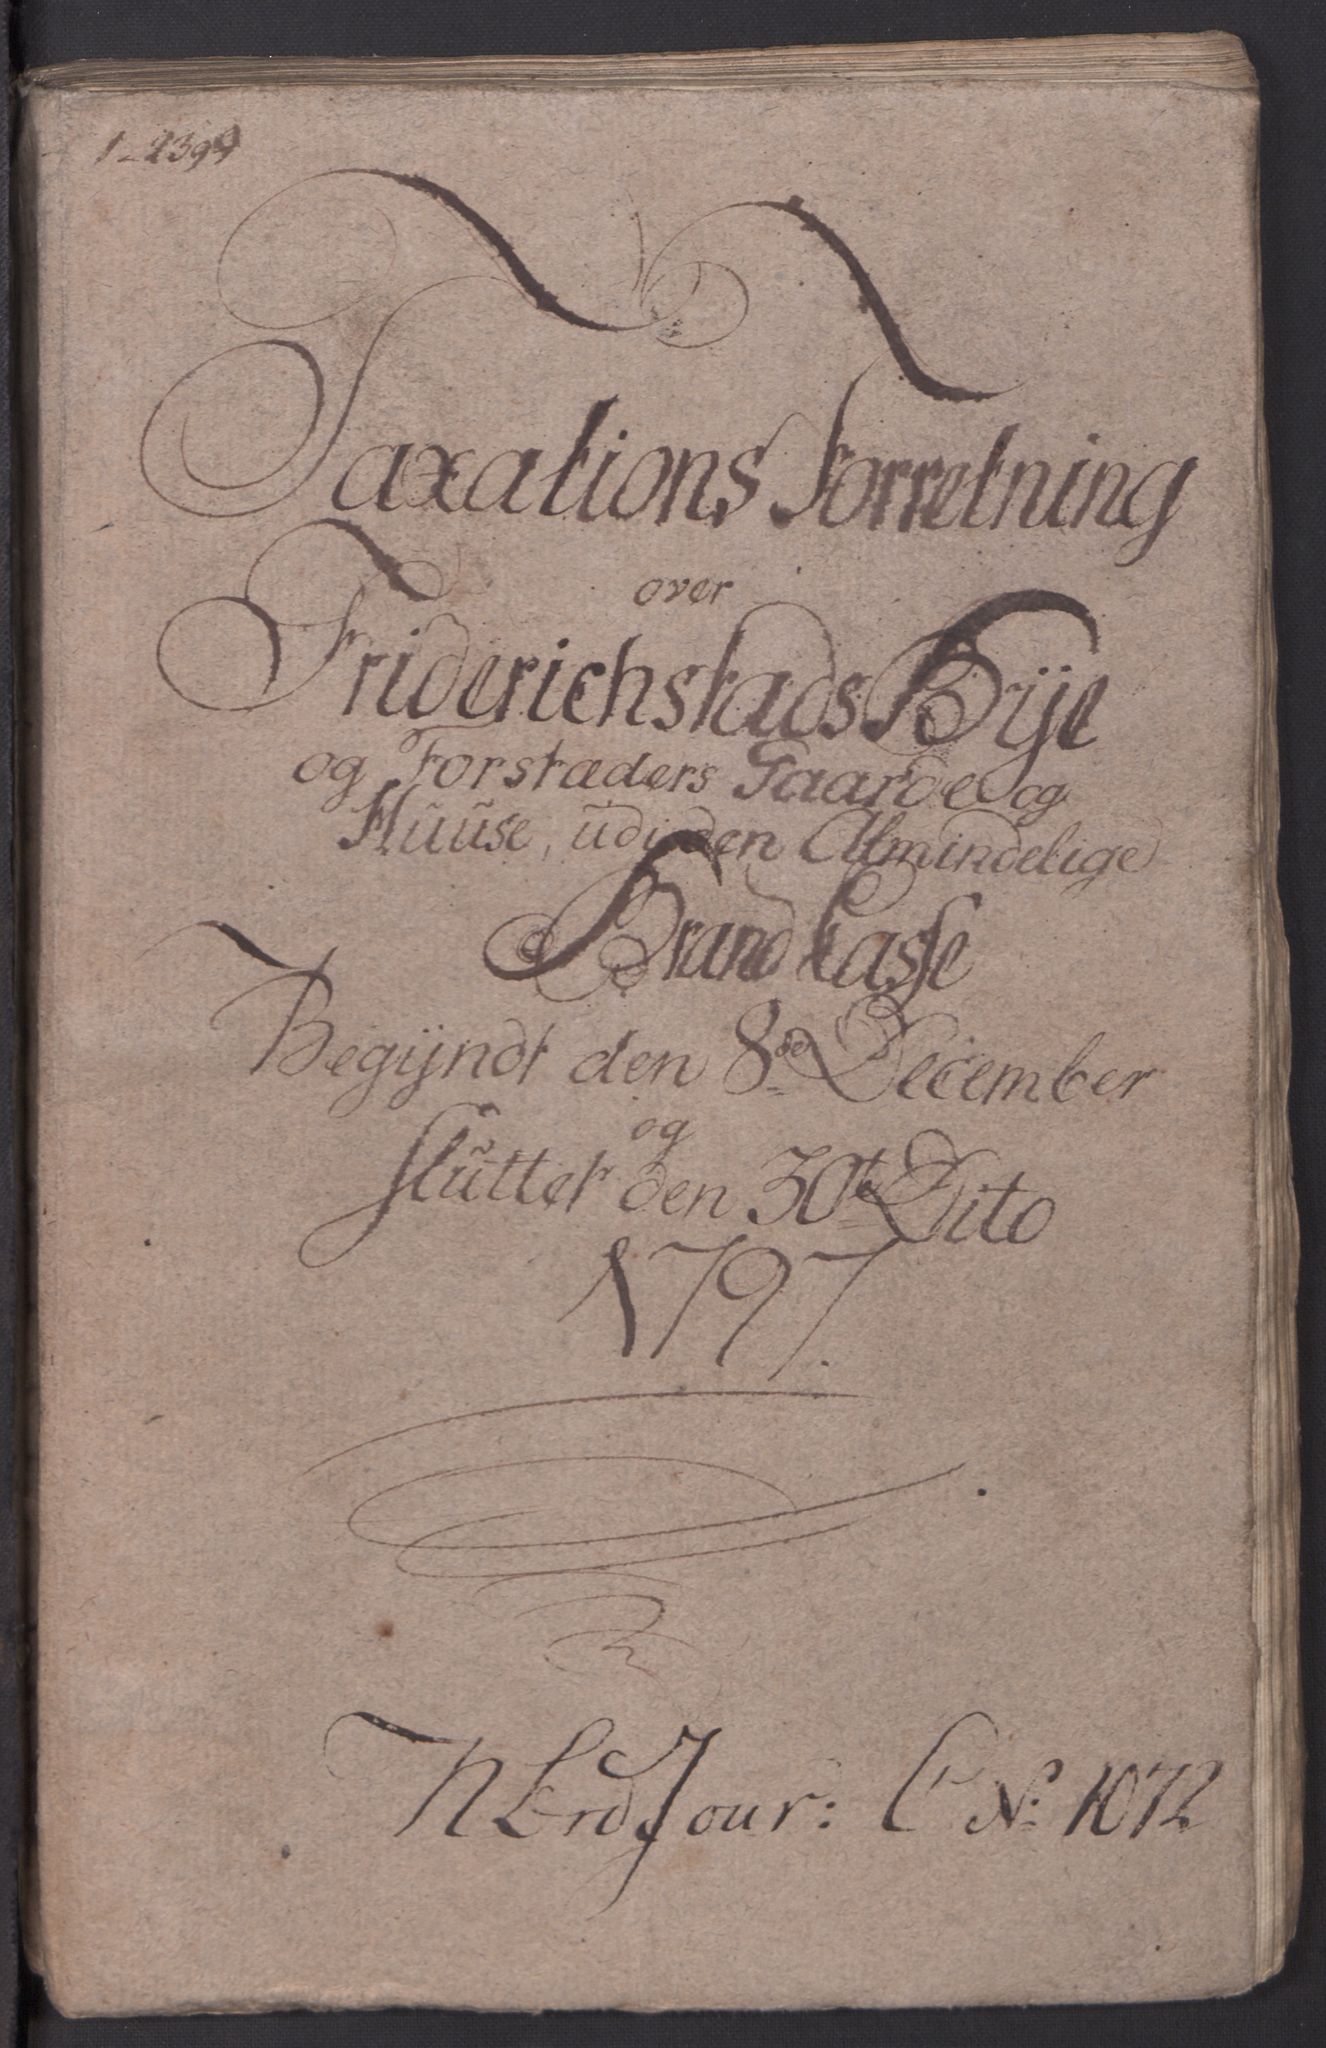 1_2399
Taxations Forretning
over
Friderichstads Bÿe
og Forstæders Gaarde og
Huuse, udi den Almindelige
Brand Casse
Begÿndt den 8de December
og
sluttet den 30te Dito
1797.
Jour: C No: 1072